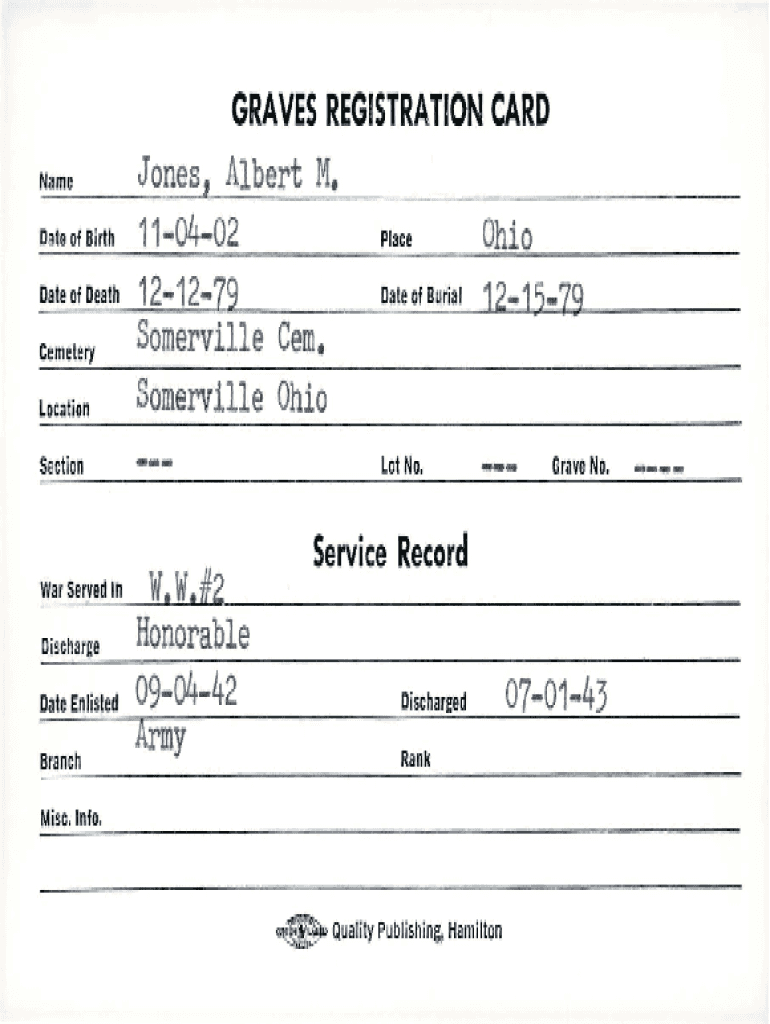 GRAVES REGISTRATION CARD
Name Jones, Albert M.
Date of Birth 11-04-02 Place Ohio
Date of Death 12-12-79 Date of Burial 12-15-79
Cemetery Somerville Cem.
Location Somerville Ohio
Section --- Lot No. --- Grave No. ----
Service Record
War Served In W.W.#2
Discharge Honorable
Date Enlisted 09-04-42 Discharged 07-01-43
Branch Army Rank
Misc. Info.
Quality Publishing, Hamilton